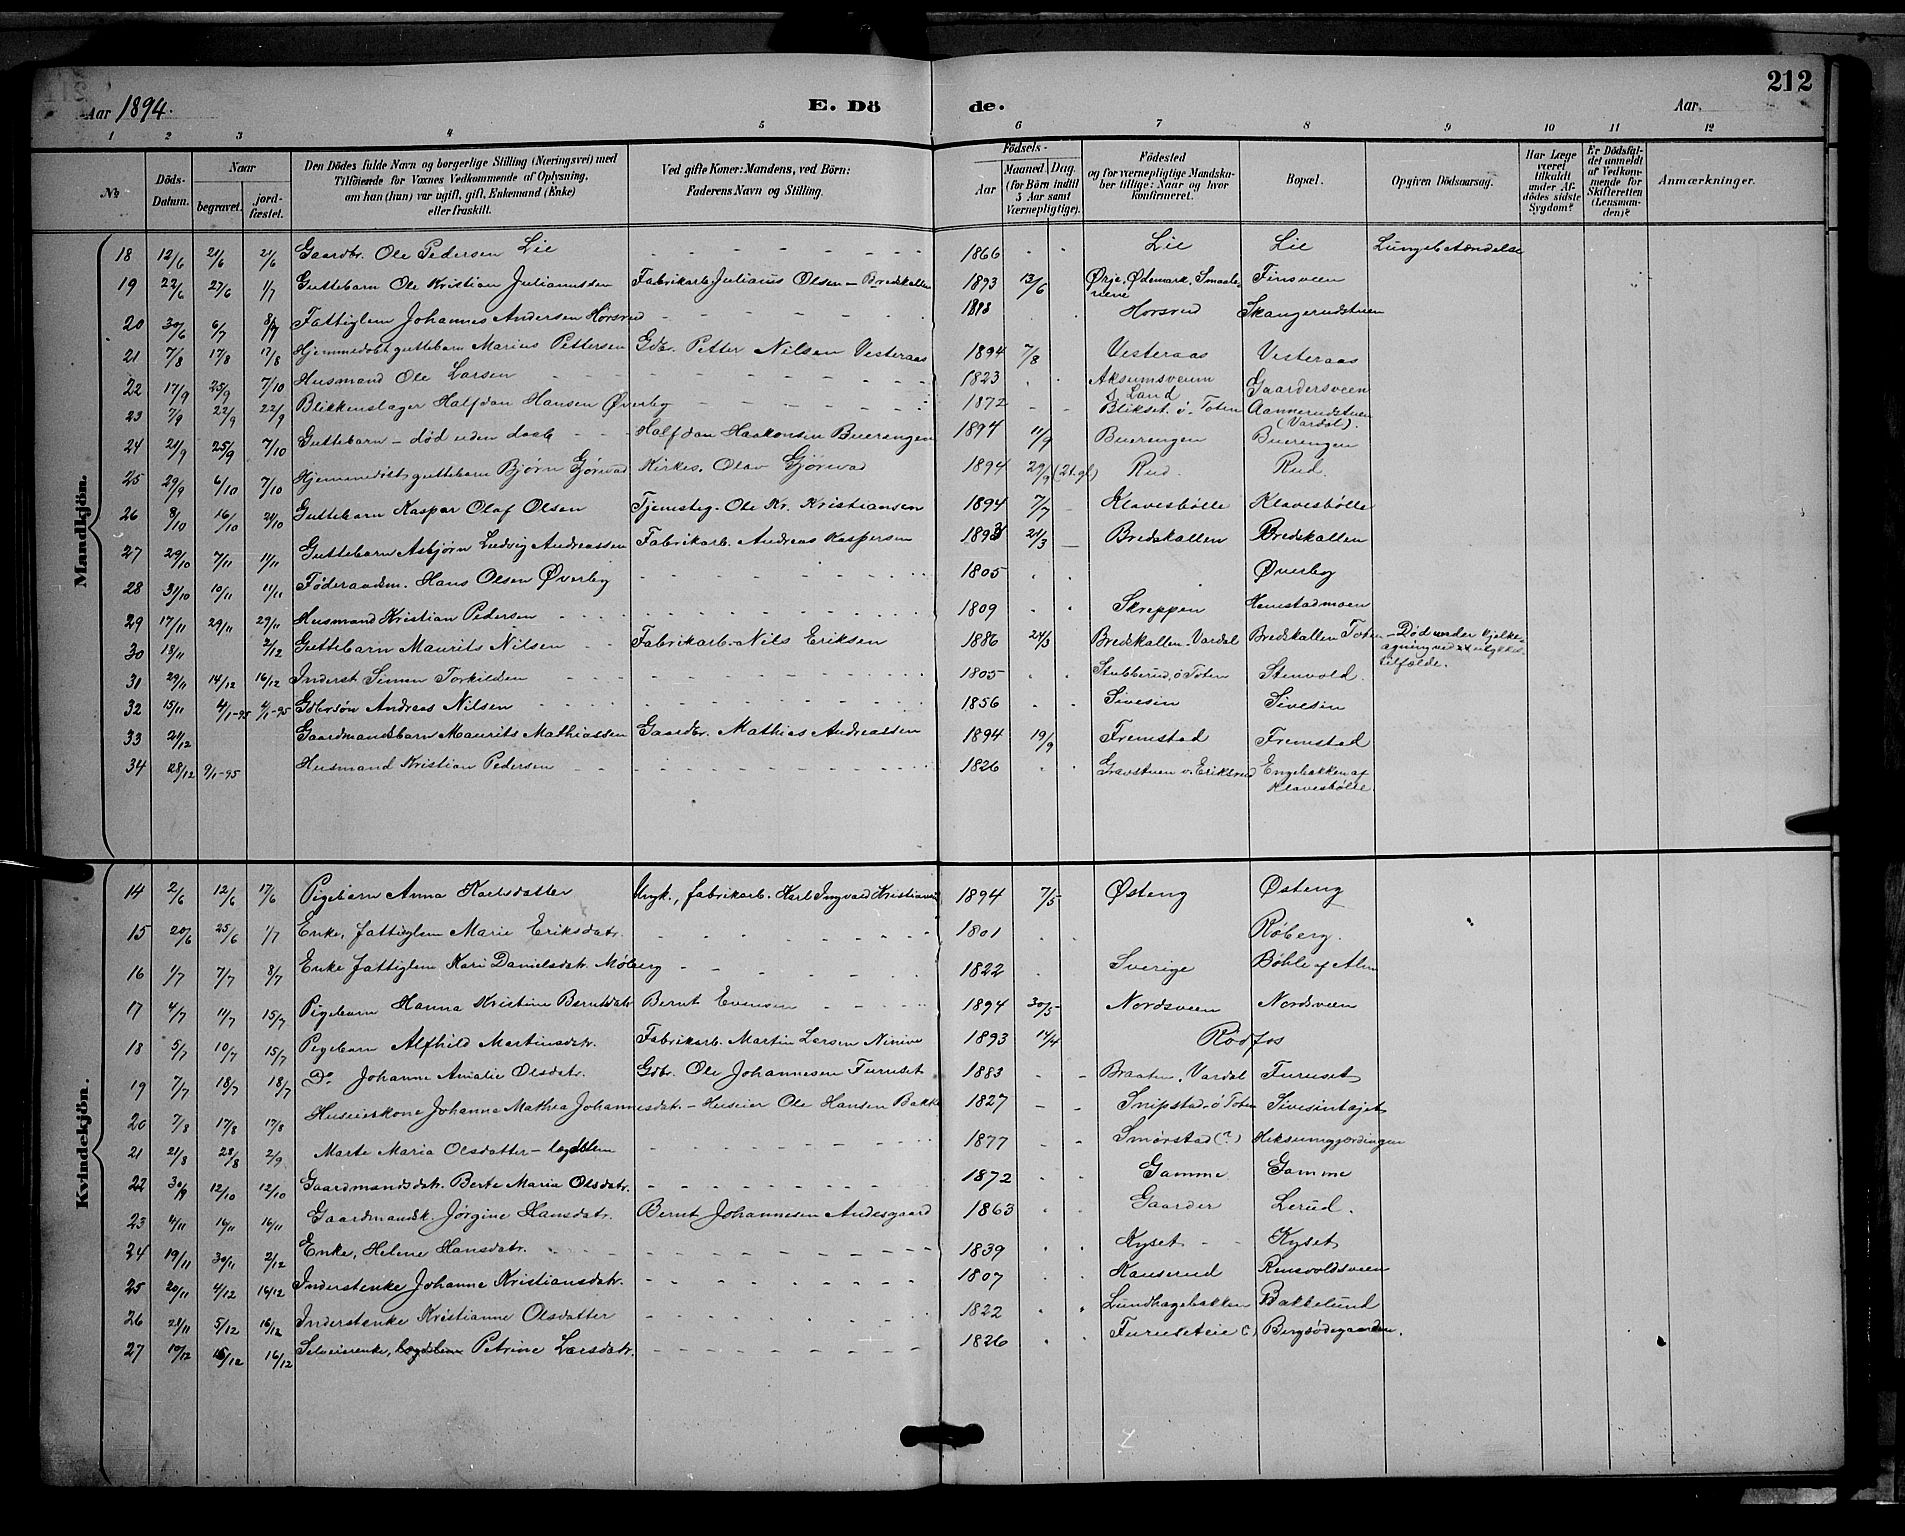 212
Aar 1894.
E. Dö de.
Aar
1 2 3 4 5 6 7 8 9 10 11 12
№ Döds-Datum. Naar begravet. jordfæstet. Den Dödes fulde Navn og borgerlige Stilling (Næringsvei) med Tilföiende for Voxnes Vedkommende af Oplysning, om han (hun) var ugift, gift, Enkemand (Enke) eller fraskilt. Ved gifte Koner: Mandens, ved Börn: Faderens Navn og Stilling. Födsels- Aar Maaned Dag. (for Börn indtil 5 Aar samt Værnepligtige). Födested og for værnepligtige Mandskaber tillige: Naar og hvor konfirmeret. Bopæl. Opgiven Dödsaarsag. Har Læge været tilkaldt under Afdödes sidste Sygdom? Er Dödsfaldet anmeldt af Vedkommende for Skifteretten (Lensmanden)? Anmærkninger.
Mandkjön.
18 12/6 21/6 2/6 Gaardbr. Ole Pedersen Lie 1866 Lie Lie Lungebetændelse
19 22/6 27/6 1/7 Guttebarn Ole Kristian Julianussen Fabrikarb. Julianus Olsen – Bredskallen 1893 13/6 Ørje, Ødemark, Smaalenene Finsveen
20 30/6 6/7 8/7 Fattiglem Johannes Andersen Horsrud Horsrud Skangerudstuen
21 7/8 17/8 17/8 Hjemmedøbt guttebarn Marius Pettersen Gdbr. Petter Nilsen Vesteraas 1894 7/8 Vesteraas Vesteraas
22 17/9 25/9 7/10 Husmand Ole Larsen 1823 Aksumsveum S. Land Gaardersveen
23 7/9 22/9 22/9 Blikkenslager Halfdan Hansen Øverby 1872 Blikset. ø. Toten Aannerudstuen (Vardal).
24 21/9 25/9 7/10 Guttebarn – død uden daab Halfdan Haakonsen Buerengen 1894 11/9 Buerengen Buerengen
25 29/9 6/10 7/10 Hjemmedøbt guttebarn Bjørn Gjørvad Kirkes. Olav Gjørvad 1894 29/9 (2t. gl) Rud. Rud.
26 8/10 16/10 21/10 Guttebarn Kaspar Olaf Olsen Tjenesteg. Ole Kr. Kristiansen 1894 7/7 Klavesbølle Klavesbølle
27 29/10 7/11 11/11 Guttebarn Asbjørn Ludvig Andreassen Fabrikarb. Andreas Kaspersen 1893 21/3 Bredskallen Bredskallen
28 31/10 10/11 11/11 Føderaadsm. Hans Olsen Øverby 1805 Øverby
29 17/11 29/11 29/11 Husmand Kristian Pedersen 1809 Skreppen Hemstadmoen
30 18/11 2/12 Guttebarn Maurits Nilsen Fabrikarb. Nils Eriksen 1886 24/3 Bredskallen. Vardal Bredskallen Toten – Død under kjelkeagning ved ulykkestilfælde.
31 29/11 14/12 16/12 Inderst Simen Torkildsen 1805 Stubberud, ø Toten Stenvold.
32 15/11 4/1-95 4/1-95 Gdbrsøn Andreas Nilsen 1856 Sivesin Sivesin
33 21/12 Gaardmandsbarn Maurits Mathiassen Gaardbr. Mathias Andreassen 1894 19/9 Fremstad Fremstad
34 28/12 9/1-95 Husmand Kristian Pedersen 1826 Gravstuen v. Eriksrud Engebakken af Klavesbølle
Kvindekjön.
14 2/6 12/6 17/6 Pigebarn Anna Karlsdatter Ungk., fabrikarb. Karl Ingvald Kristiansen 1894 7/5 Østeng Østeng
15 20/6 25/6 1/7 Enke, fattiglem Marie Eriksdatr. 1801 Røberg.
16 1/7 7/7 8/7 Enke fattiglem Kari Danielsdatr. Møberg 1822 Sverige Bøhle af Alm
17 4/7 11/7 15/7 Pigebarn Hanna Kristine Berntsdatr Bernt Evensen 1894 30/5 Nordsveen Nordsveen
18 5/7 10/7 15/7 Pigebarn Alfhild Martinsdatr. Fabrikarb. Martin Larsen Ninive 1893 14/4 Rødfos
19 7/7 18/7 18/7 Do Johanne Amalie Olsdatr. Gdbr. Ole Johannesen Furuset 1883 Braaten, Vardal Furuset
20 7/8 17/8 17/8 Huseierkone Johanne Mathea Johannesdat. – Huseier Ole Hansen Bakke 1827 Snipstad. ø Toten Sivesintajet
21 21/8 28/8 2/9 Marte Maria Olsdatter – lægdslem 1877 Smørstad (?) Heksumgjærdingen
22 30/9 12/10 12/10 Gaardmandsdatr. Berte Maria Olsdatr. 1872 Gamme Gamme
23 4/11 16/11 16/11 Gaardmandsk. Jørgine Hansdatr. Bernt Johannesen Andesgaard 1863 Gaarder Lerud.
24 19/11 30/11 2/12 Enke, Helene Hansdatr. 1839 Kyset Kyset
25 20/11 4/12 16/12 Inderstenke Johanne Kristiansdatr. 1807 Hanserud Rensvoldsveen
26 28/11 5/12 16/12 Inderstenke Kristianne Olsdatter 1822 Lundhagebakken Bakkelund
27 10/12 15/12 16/12 Selveierenke, lægdslem Petrine Larsdatr. 1826 Furuseteie Bergsødegaarden.